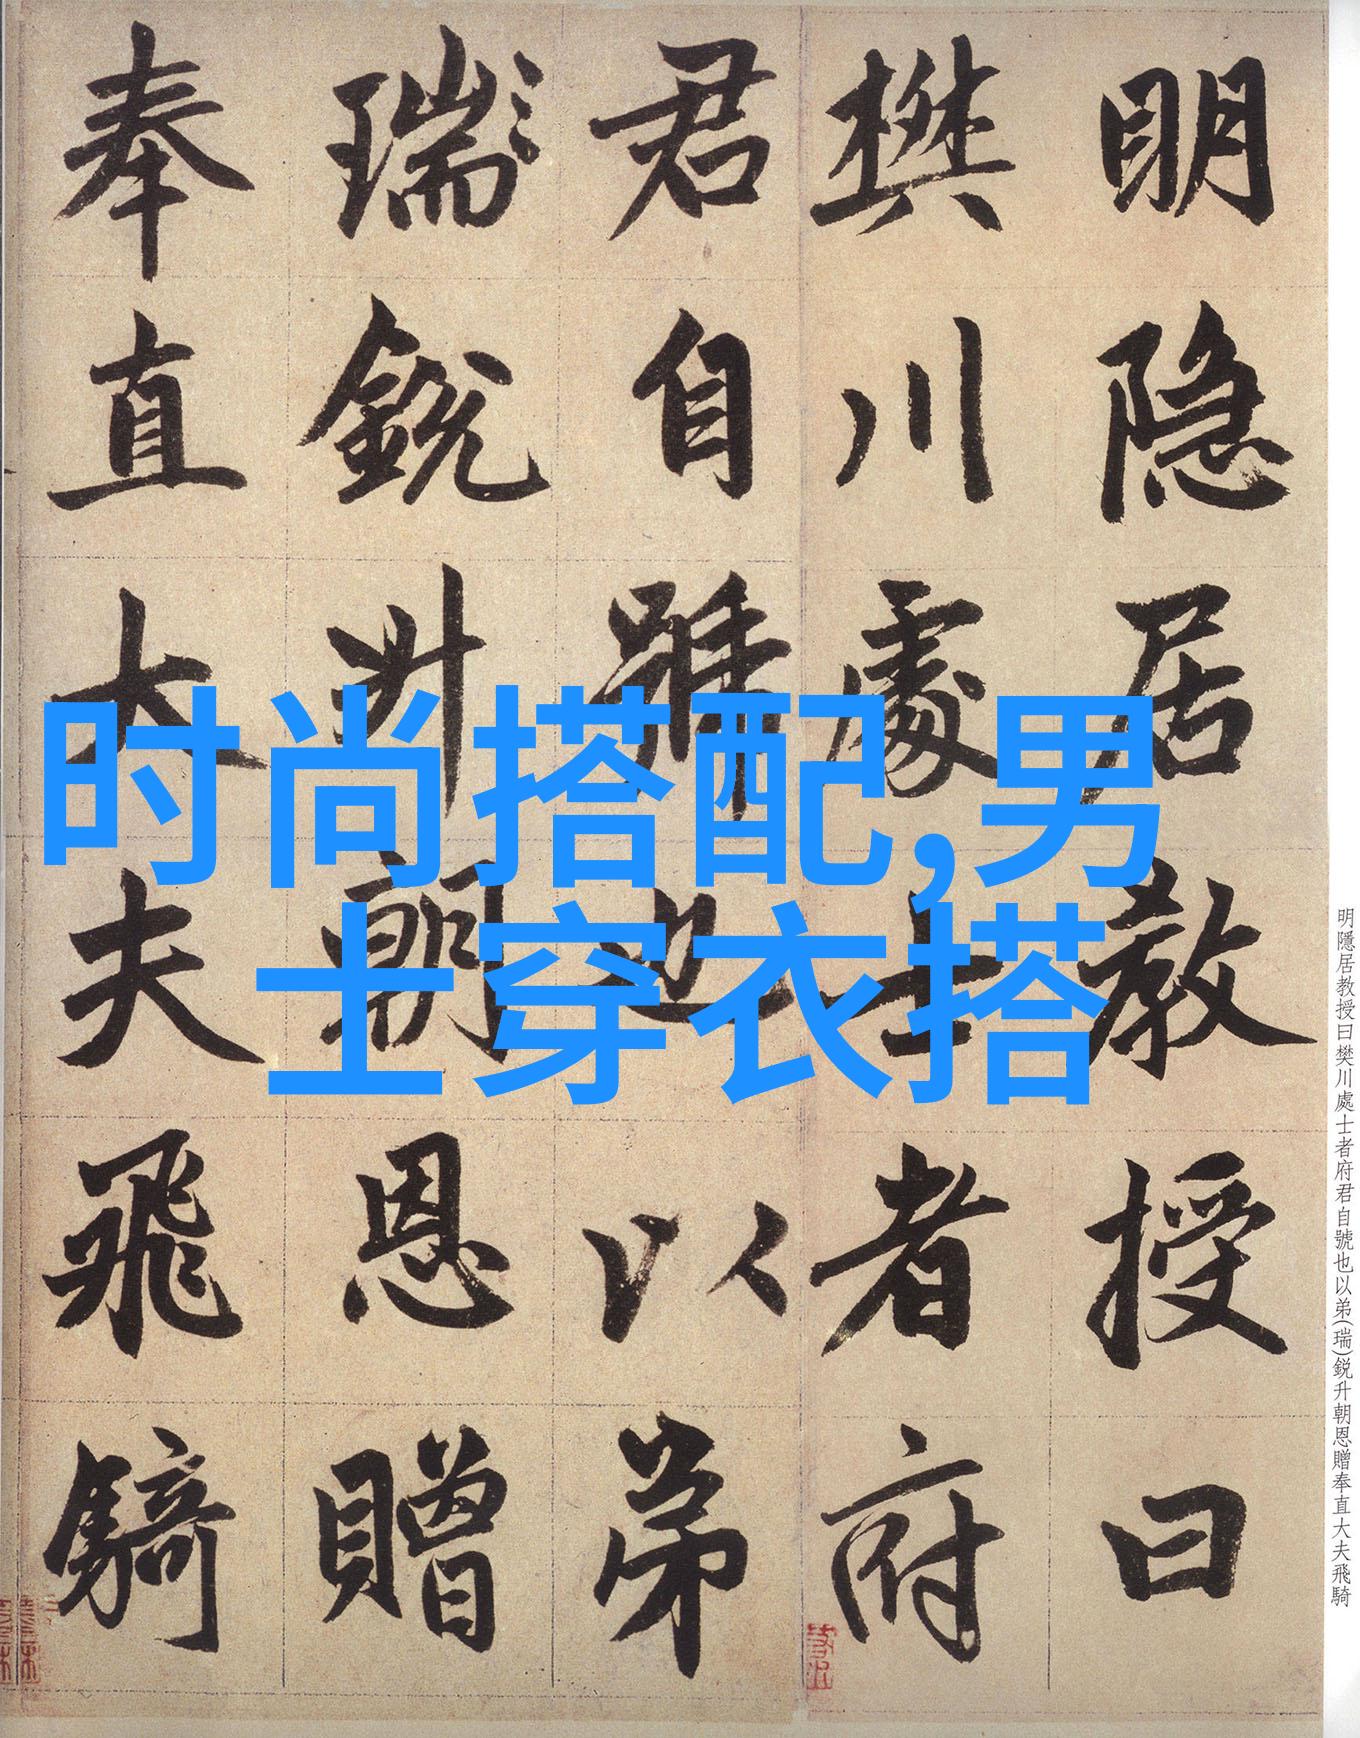 明隐居教授曰
樊川處士者府
君自號也以弟
瑞銳升朝恩贈
奉直大夫飛騎
时尚搭配,男
士穿衣搭
明隱居教授曰樊川處士者府君自號也以弟(瑞)鋭升朝恩贈奉直大夫飛騎